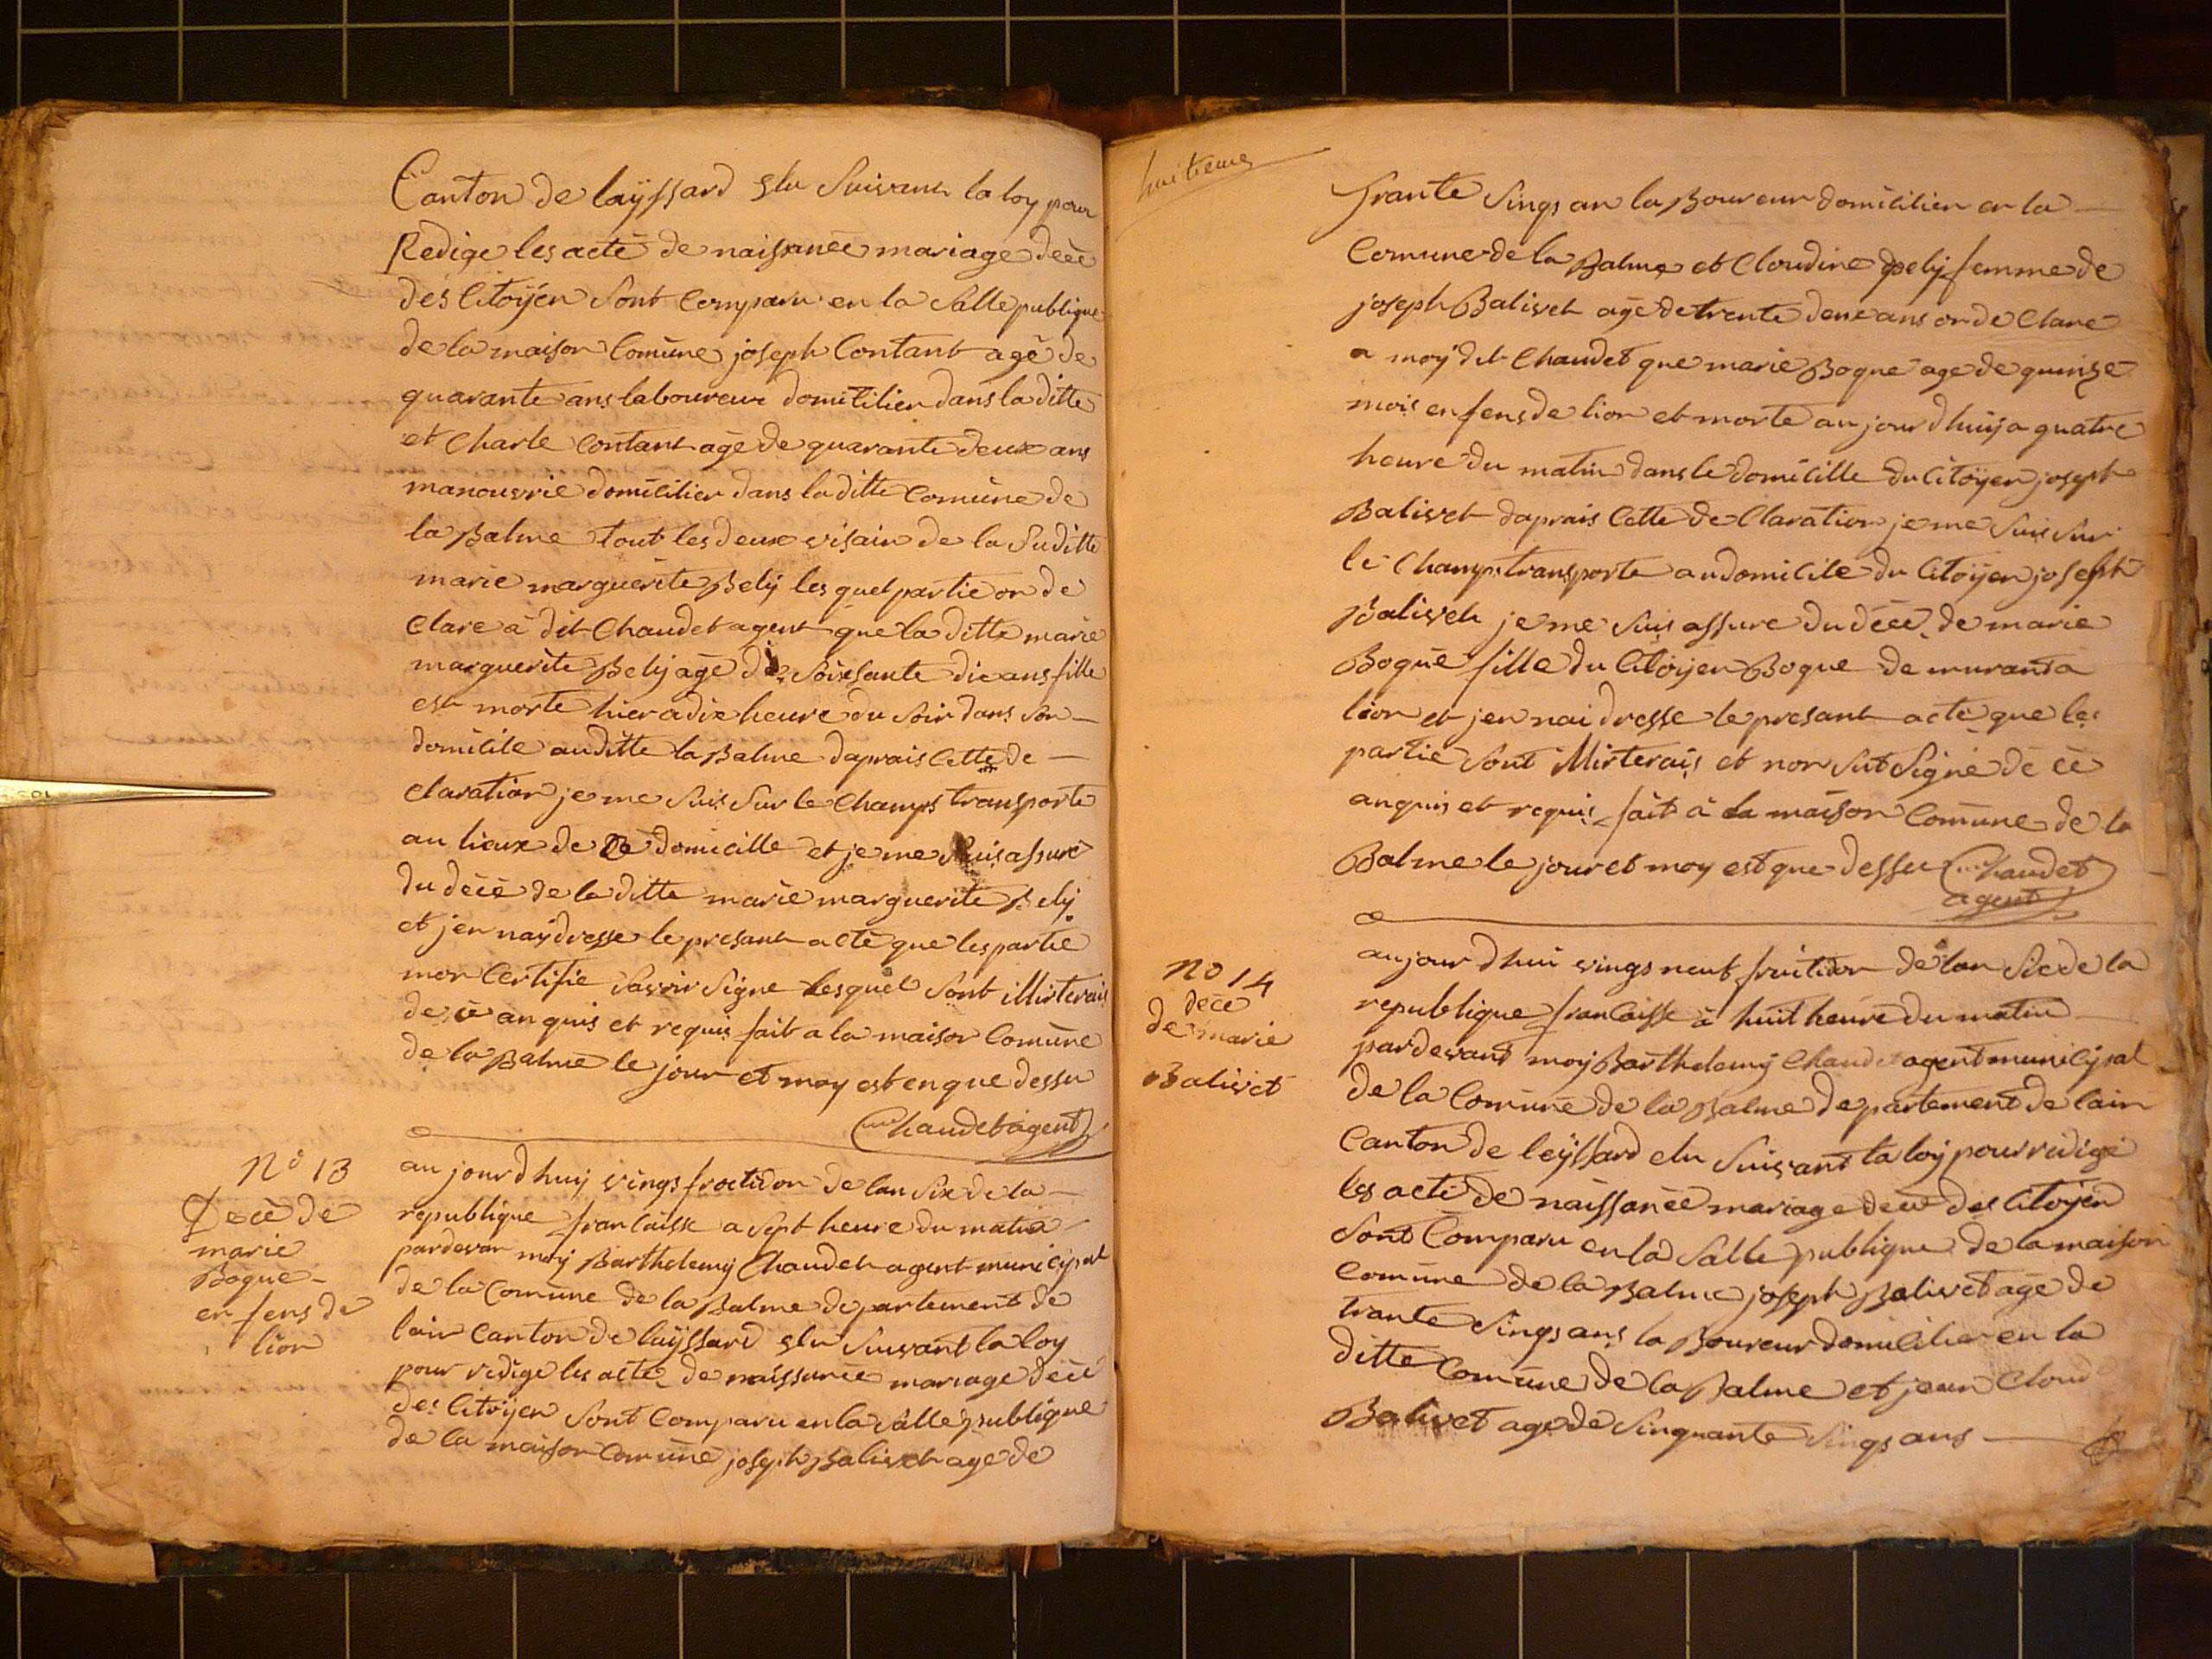 Canton de layssard elu Suivant la loy pour
Redige les acte de naissanée mariage décé
des Citoÿen Sont Comparu en la Salle publique
de la maison Comüne joseph Contant agé de
quarante ans laboureur domitilier dans la ditte
et Charle Contant age de quarante deux ans
manouvrie domicilier dans la ditte Comüne de
la Balme tout les deux visain de la Suditte
marie marguerite Belÿ les quel partie on de
Clare a dit Chaudet agent que la ditte marie
marguerite Belÿ age de Soixsante dix ans fille
est morte hier a dix heure du Soir dans Son
domitile au ditte la Balme daprais Cette de
claration je me Suis Sur le Champs transporte
au lieux de Ce domicille et je me Suis assure
du décé de la ditte marie marguerite Belÿ
et jen naÿ dresse le presant acte que les partie
mon Certifie Savoir Signe lesquel Sont illisterais
de cé anquis et requis fait a la maison Comüne
de la Balme le jour et moy est en que dessu
Chaudet agent
huitieme
No 13
Décé de
marie
Bogue
en fens de
lion
au jourdhuÿ vings fructidor de lan Six de la
republique francaisse a Sept heure du matin
pardevan moÿ Barthelemÿ Chaudet agent municipal
de la Comüne de la Balme departement de
lain Canton de layssard elu Suivant la loy
pour redige les acte de naissanée mariage décé
des Citoÿen Sont Comparu en la Salle publique
de la maison Comüne joseph Balivet age de
trante Sings an la Boureur domicilier en la
Comune de la Balme et Cloudine Belÿ femme de
joseph Balivet age de trente deux ans on de Clare
a moÿ dit Chaudet que marie Bogue age de quinse
mois en fens de lion et morte au jourdhuÿ a quatre
heure du matin dans le domicille du Citoÿen joseph
Balivet daprais Cette de Claration je me Suis Sur
le Champ transporte au domicile du Citoÿen joseph
Balivet je me Suis assure du décé de marie
Bogue fille du Citoÿen Bogue de muranta
lion et jen nai dresse le presant acte que les
partie Sont illisterais et non Sut Signé de cé
anquis et requis fait à la maison Comüne de la
Balme le jour et moy est que dessu Chaudet
agent
No 14
déce
de marie
Balivet
aujourdhui vings neuf fruitidor de lan Sic de la
republique francaisse à huit heure du matin
pardevant moÿ Barthelemÿ Chaudet agent municipal
de la Comüne de la Balme departement de lain
Canton de leÿssard elu Suivant la loÿ pour redige
les acte de naissanée mariage décé des Citoÿen
Sont Comparu en la Salle publique de la maison
Comüne de la Balme joseph Balivet age de
trante Sings ans la Boureur domicilier en la
ditte Comüne de la Balme et jean Cloud
Balivet age de Singuante Sings ans